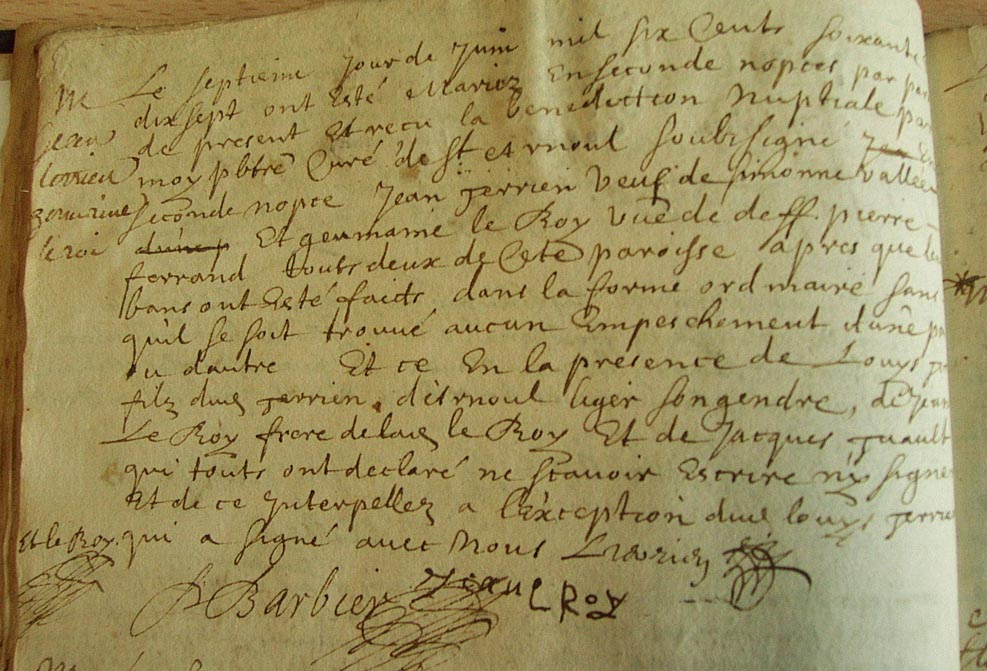 M
Jean
terrien
germaine
le roi
Le septieme Jour de Juin mil six Cents soixante
dix sept ont Esté Mariez En seconde nopces par pa
de present Et recu la benediction nuptiale par
moy pbtre Curé de St ernoul soubisigné
seconde nopce Jean Terrien veuf de simonne Vallée
Et germaine le Roy vue de deff. pierre
ferrand touts deux de Cete paroisse apres que les
bans ont Esté faits dans la forme ordinaire sans
quil se soit trouué aucun Empeschement dune pa
ou dautre Et ce En la presence de Louys
filz dud Terrien, dernoul liger son gendre, de Jean
Le Roy frere de lad le Roy Et de Jacques gruault
qui touts ont declaré ne scauoir Escrire ny signer
Et de ce Interpellez a l'exception dud louys Terrien
Et le Roy. qui a signé auec Nous L terrien
Barbier Jean L Roy